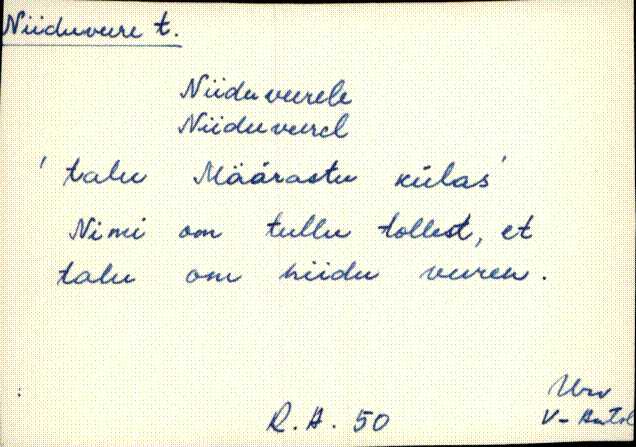 Niiduveere t.
Niiduveerele
Niiduveerel
' talu Määrastu külas '
Nimi om tullu tollest, et
talu om niidu veeren.
Urv
R.H. 50
V-